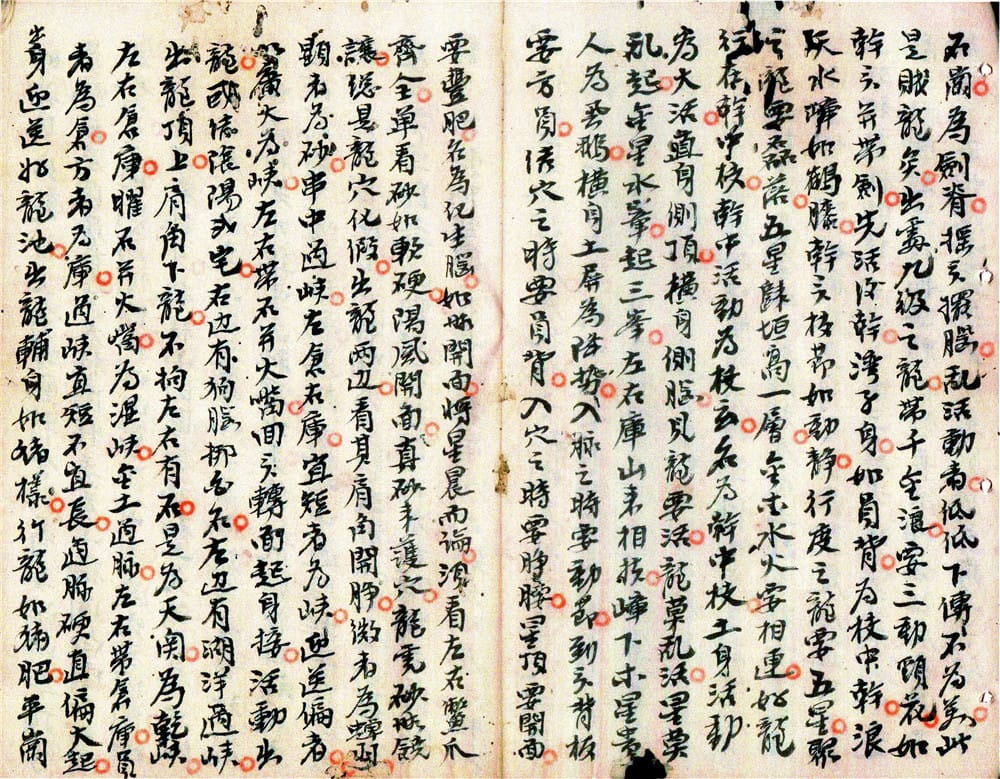 石崗為劍脊搖頭擺腦乱活動者低低下傳不為美此
是賊龍矣出雾九級之龍帶千金浪要三動頭花如
幹头并帶劍先活後幹湾子身如員背為枝中幹浪
跃水嶂如鶴膝幹头枝節如動静行度之龍要五星聚
龍要磊落五星歸垣高一層金木水火要相連好龍
行在幹中枝幹中活動為枝玄名為幹中枝土身活動
為大活直身側頂横身側腦見龍要活龍莫乱活星莫
乱起金星水峯起三峯左右庫山来相扶嶂下木星貴
人為天鵝横身土屏為陣势入脉之時要動節到头背板
要方員結穴之時要員背入穴之時要睁腰星頂要開面
要豐肥名為化生腦如無開面将星晨而論須看左右蟹爪
齊全單看砂如軟硬陽風開面真砂来護穴龍虎砂無饒
讓总是龍穴化假出龍两边看其肩角開睁微者為蟬翅
顕者為砂串中過峡左倉右庫宜短者為峡迎送偏者
廣大為峡左右帶石并火嘴回头轉面起身接活動出
龍或結陰陽式宅右边有狗腦挪名左边有湖洋過峡
出龍頂上肩角下龍不拘左右有石是為天関為乾峡
左右倉庫曜石并火嘴為湿峡金土過脉左右帶倉庫員
者為倉方者為庫過峡宜短不宜長過脉硬直偏大起
身迎送好龍池出龍輔身如猪樣行龍如猪肥平崗